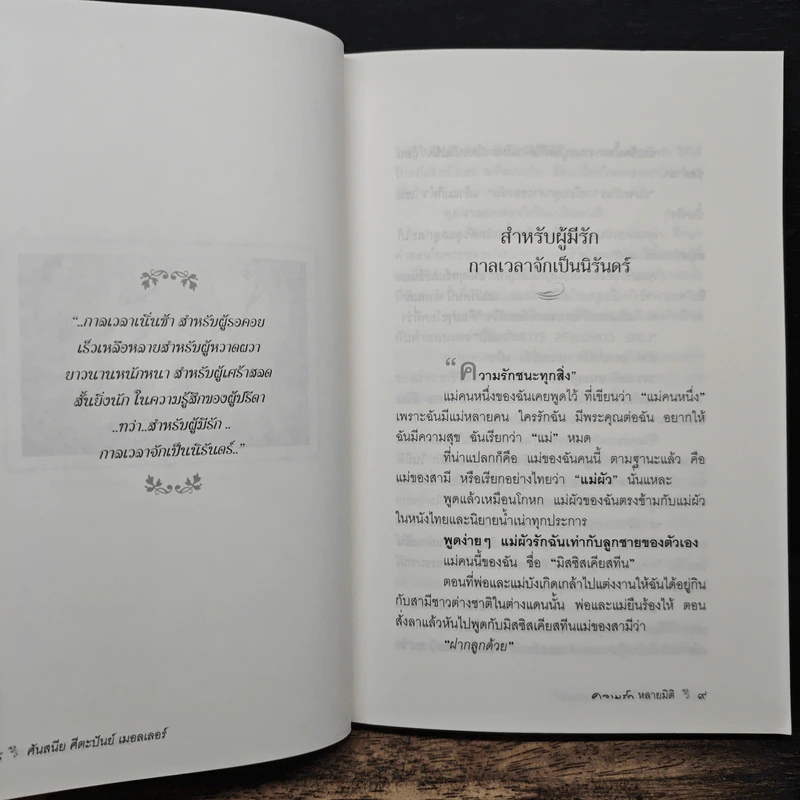 “..กาลเวลาเนิ่นช้า สำหรับผู้รอคอย
เร็วเหลือหลายสำหรับผู้หวาดผวา
ยาวนานหนักหนา สำหรับผู้เศร้าสลด
สั้นยิ่งนัก ในความรู้สึกของผู้ปรีดา
..ทว่า..สำหรับผู้มีรัก ..
กาลเวลาจักเป็นนิรันดร์..”
ศันสนีย ศีตะปันย์ เมอลเลอร์
สำหรับผู้มีรัก
กาลเวลาจักเป็นนิรันดร์
“ความรักชนะทุกสิ่ง”
แม่คนหนึ่งของฉันเคยพูดไว้ ที่เขียนว่า “แม่คนหนึ่ง”
เพราะฉันมีแม่หลายคน ใครรักฉัน มีพระคุณต่อฉัน อยากให้
ฉันมีความสุข ฉันเรียกว่า “แม่” หมด
ที่น่าแปลกก็คือ แม่ของฉันคนนี้ ตามฐานะแล้ว คือ
แม่ของสามี หรือเรียกอย่างไทยว่า “แม่ผัว” นั่นแหละ
พูดแล้วเหมือนโกหก แม่ผัวของฉันตรงข้ามกับแม่ผัว
ในหนังไทยและนิยายน้ำเน่าทุกประการ
พูดง่ายๆ แม่ผัวรักฉันเท่ากับลูกชายของตัวเอง
แม่คนนี้ของฉัน ชื่อ “มิสซิสเคียสทีน”
ตอนที่พ่อและแม่บังเกิดเกล้าไปแต่งงานให้ฉันได้อยู่กิน
กับสามีชาวต่างชาติในต่างแดนนั้น พ่อและแม่ยืนร้องไห้ ตอน
สั่งลาแล้วหันไปพูดกับมิสซิสเคียสทีนแม่ของสามีว่า
“ฝากลูกด้วย”
ความรัก หลายมิติ ๙